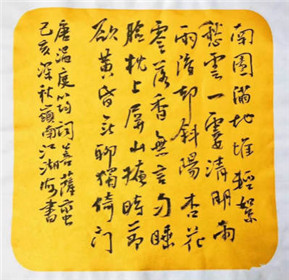 南園滿地堆輕絮
愁聞一霎清明雨
雨後却斜陽杏花
零落香無言勻睡
臉枕上屏山掩時節
欲黄昏无聊獨倚門
唐溫庭筠詞菩薩蠻
己亥深秋嶺南江湖海書